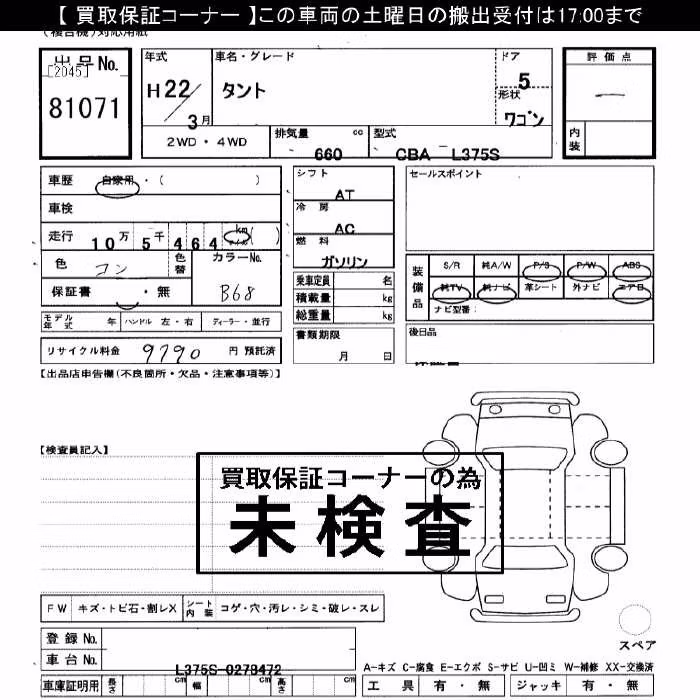 【 買取保証コーナー 】この車両の土曜日の搬出受付は17:00まで
出品No.
[2045]
81071
年式
H22/3月
車名・グレード
タント
ドア
5
形状
ワゴン
評価点
―
内装
2WD ・ 4WD
排気量 660 cc
型式 CBA L375S
車歴 自家用 ・ ( )
車検
走行 10万 5千 4 6 4 km ( )
色 コン
色替
カラーNo.
B68
保証書 ・ 無
モデル年式 年
ハンドル 左・右
ディーラー・並行
リサイクル料金 9790 円 預託済
シフト
AT
冷房
AC
燃料
ガソリン
乗車定員 名
積載量 kg
総重量 kg
書類期限
月 日
セールスポイント
装備品
S/R 純A/W P/S P/W ABS
純TV 純ナビ 革シート 外ナビ エアB
ナビ型番:
後日品
【出品店申告欄(不良箇所・欠品・注意事項等)】
【検査員記入】
買取保証コーナーの為
未検査
FW キズ・トビ石・割レX
シート内装 コゲ・穴・汚レ・シミ・破レ・スレ
登録No.
車台No.
L375S-0278472
車庫証明用 長さ cm 幅 cm 高さ cm
スペア
A-キズ C-腐食 E-エクボ S-サビ U-凹ミ W-補修 XX-交換済
工具 有・無
ジャッキ 有・無